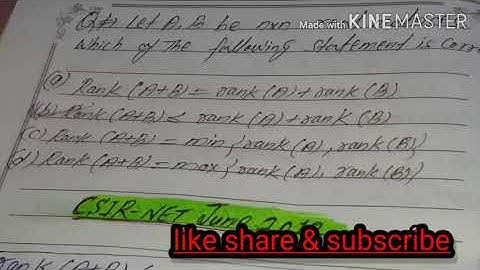 Made with KINEMASTER
Let A, B be nxn
which of the following statement is corr
(a) Rank (A+B) = rank (A) + rank (B)
(b) Rank (A+B) ≤ rank (A) + rank (B)
(c) Rank (A+B) = min {rank (A), rank (B)}
(d) Rank (A+B) = max {rank (A), rank (B)}
CSIR-NET June
like share & subscribe
Rank (A+B)